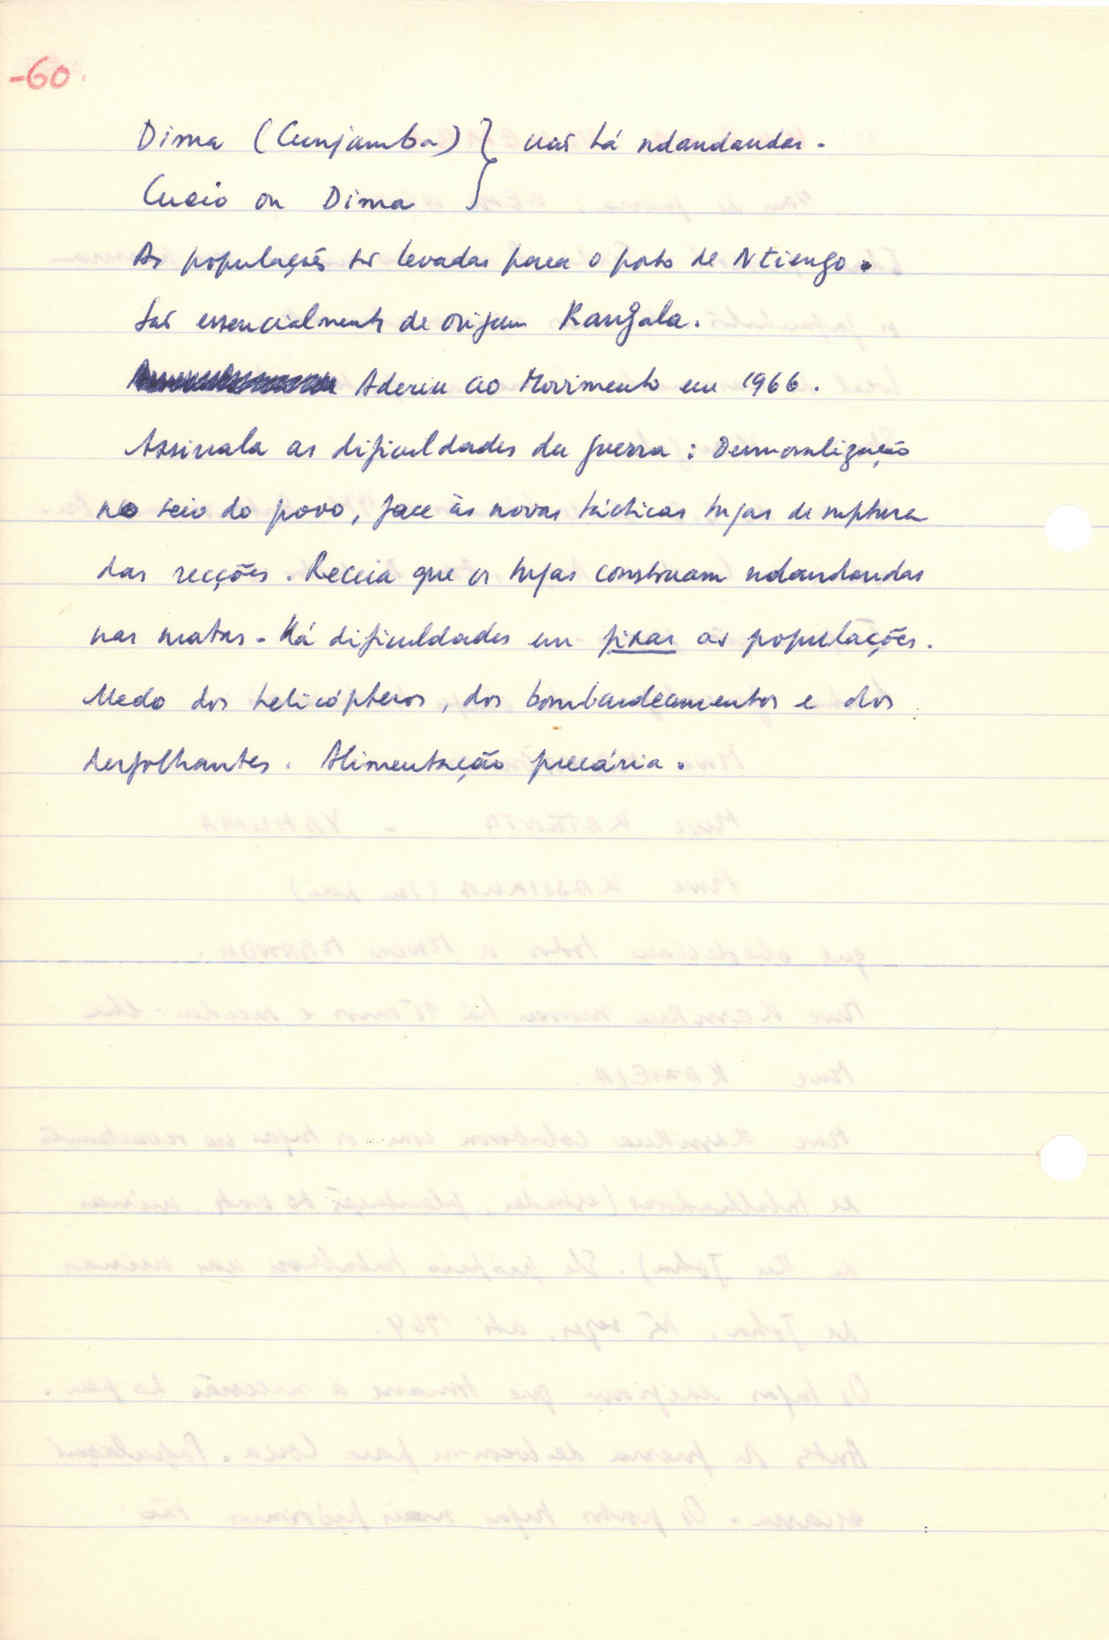 -60.
Dima (Cunjamba) } não há ndandandas.
Cueio ou Dima
As populações são levadas para o posto de Ntiengo.
São essencialmente de origem Kangala.
Aderiu ao Movimento em 1966.
Assinala as dificuldades da guerra: Desmoralização
no seio do povo, face às novas tácticas tugas de ruptura
das secções. Receia que os tugas construam ndandandas
nas matas - Há dificuldades em fixar as populações.
Medo dos helicópteros, dos bombardeamentos e dos
desfolhantes. Alimentação precária.